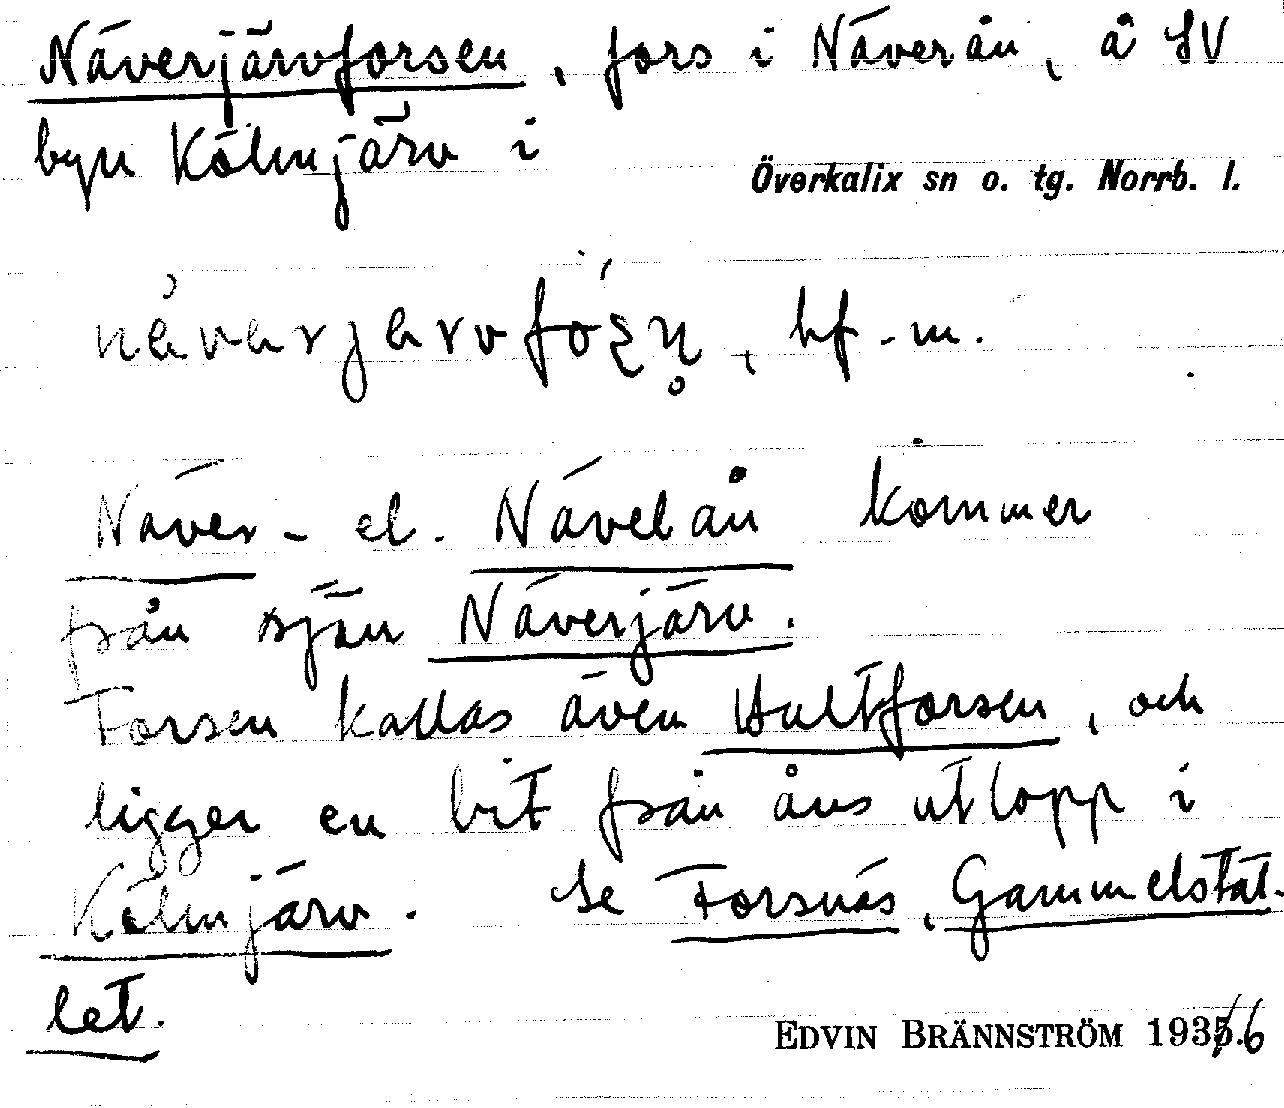 Näverjärvforsen, fors i Näverån, å SV
byn Kölmjärv i
Överkalix sn o. tg. Norrb. l.
bf. m.
Näver- el. Nävelån kommer
från sjön Näverjärv.
Forsen kallas även Hultforsen, och
ligger en bit från åns utlopp i
Kölmjärv. Se Forsnäs, Gammelstäl-
let.
EDVIN BRÄNNSTRÖM 1936